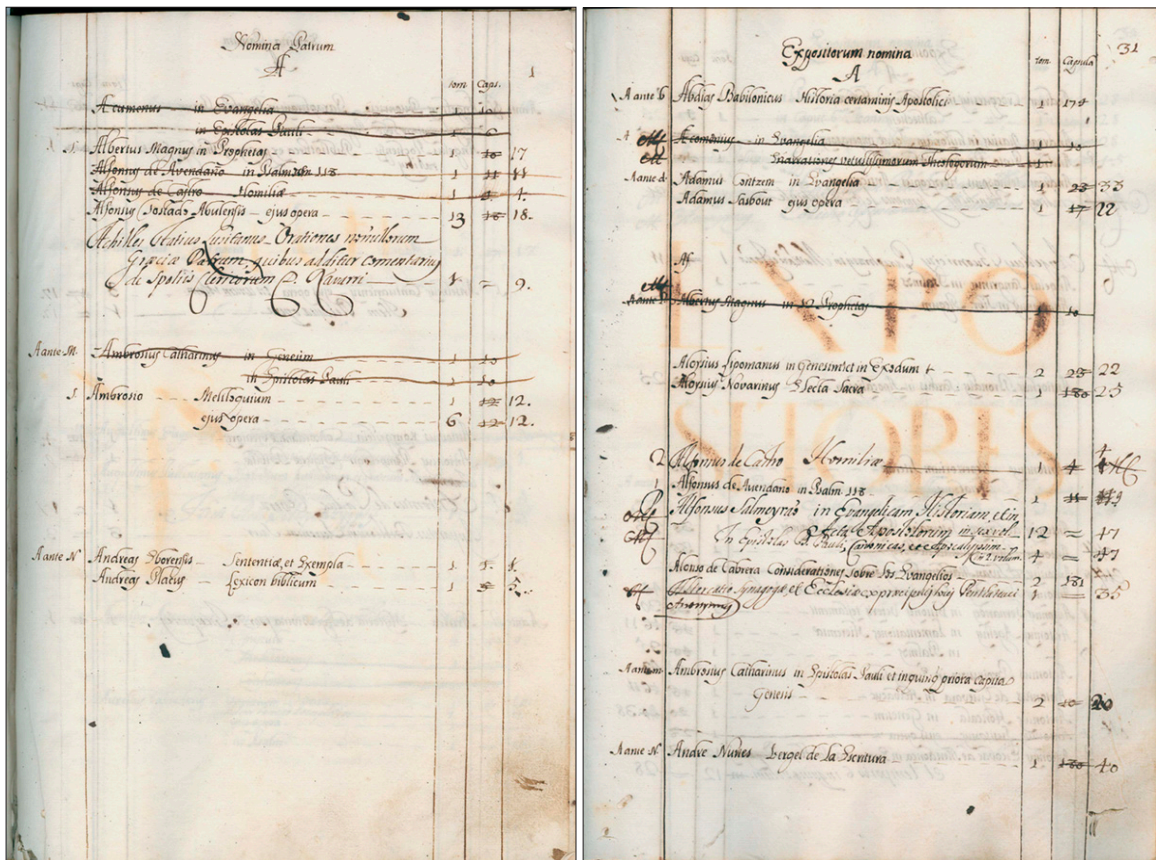 Nomina Patrum
A
1
tom. Caps.
Æcumenus in Evangelia 1 10
in Epistolas Pauli 1
Albertus Magnus in Prophetas 17
Alfonsus de Avendaño in Psalmum 118 1 11 11
Alfonsus de Castro Homiliæ 1 4. 4.
Alfonsus Tostado Abulensis ejus opera 13 18 18.
Achilles Statius Lusitanus Orationes nonnullorum
Græciæ Patrum, quibus additur Comentarius
de Spoliis Clericorum D. Navarri 1 = 9.
A ante M. Ambrosius Catharinus in Genesim 1 10
in Epistolas Pauli 1 10
S. Ambrosio Meliloquium 1 12 12.
ejus opera 6 12 12.
A ante N. Andreas Eborensis Sententiæ, et Exempla 1 1. 1.
Andreas Placus Lexicon biblicum 1 5 5.
Expositorum nomina
A
31
tom. Capsula
A ante b Abdias Babilonicus Historia certaminis Apostolici 1 174
Æcomenius in Evangelia 1 10
Enarrationes vetustissimorum Theologorum 1
A ante d Adamus Contzem in Evangelia 1 23 33
Adamus Sasbout ejus opera 1 17 22
Al
A ante l Albertus Magnus in 12 Prophetas 1 10
Aloysius Lipomanus in Genesim et in Exodum 2 23 22
Aloysius Novarinus Electa Sacra 1 180 25
2 Alfonsus de Castro Homiliæ 1 4 4
1 Alfonsus de Avendano in Psalm. 118 1 11
Alfonsus Salmeyrō in Evangelicam Historiam, et in
Acta Apostolorum in sex vol. 12 = 47
In Epistolas B. Pauli, Canonicas, et Apocalypsim 4 = 47
Alonso de Cabrera Consideraciones sobre los Evangelios 2 181
Altercatio Synagogæ, et Ecclesiæ 1 = 35
Anonymus
A ante m Ambrosius Catharinus in Epistolas Pauli et in quinq priora capita
Genesis 2 10 20
A ante N. Andre Nunes Vergel de la Escritura 1 180 40
EXPO
SITORES